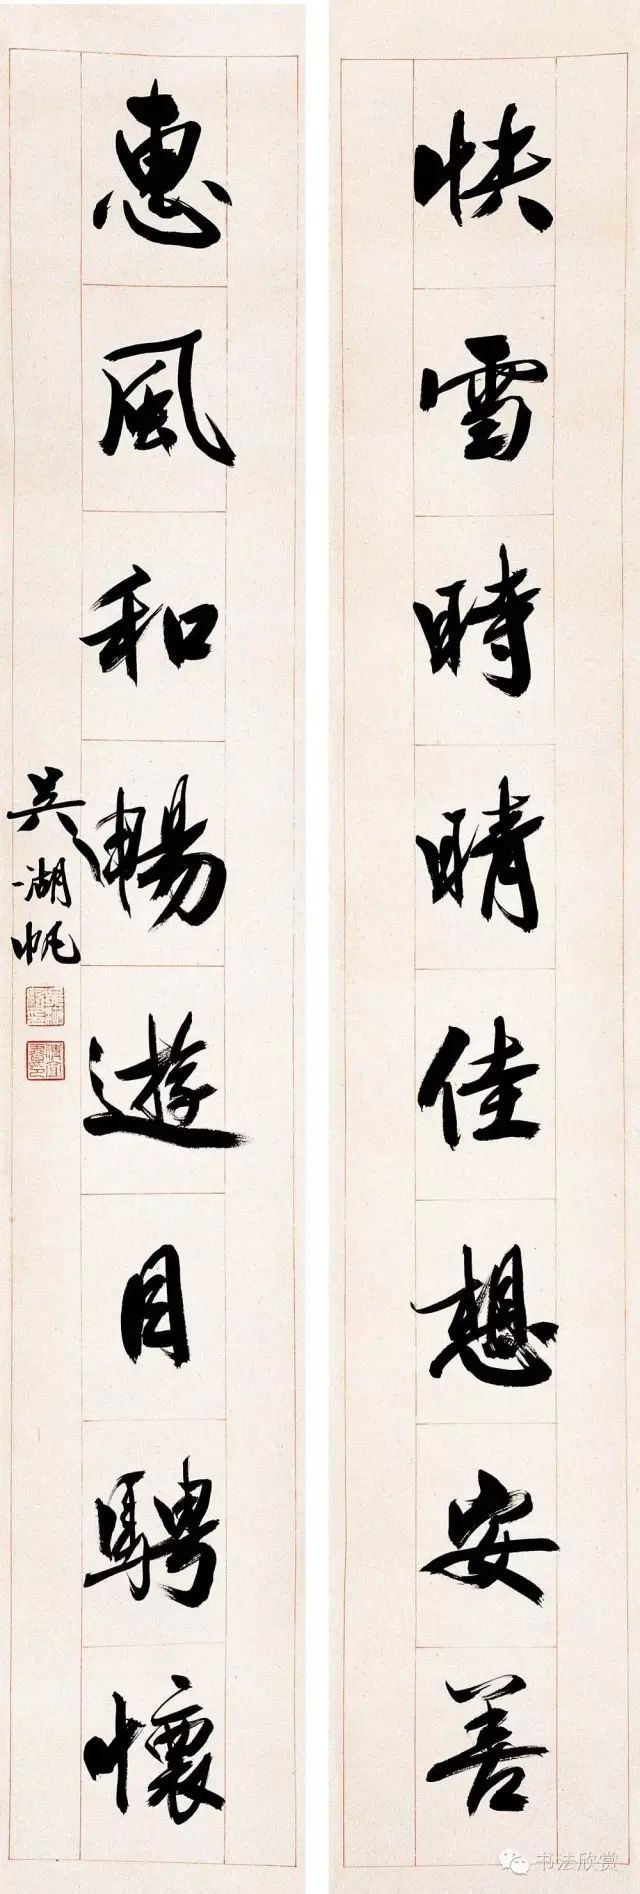 快雪時晴佳想安善
惠風和暢遊目騁懷
吳湖帆
书法欣赏